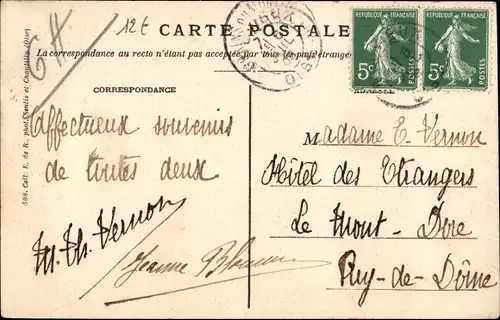 GH
12€
CARTE POSTALE
La correspondance au recto n'étant pas acceptée par tous les pays étrangers
RÉPUBLIQUE FRANÇAISE
5c
POSTES
RÉPUBLIQUE FRANÇAISE
5c
POSTES
CORRESPONDANCE
ADRESSE
Affectueux souvenirs
de toutes deux
M. Th. Vernon
Jeanne
Madame E. Vernon
Hôtel des Etrangers
Le Mont-Dore
Puy-de-Dôme
508. Coll. E. de R., phot. Senlis et Chantilly (Oise)